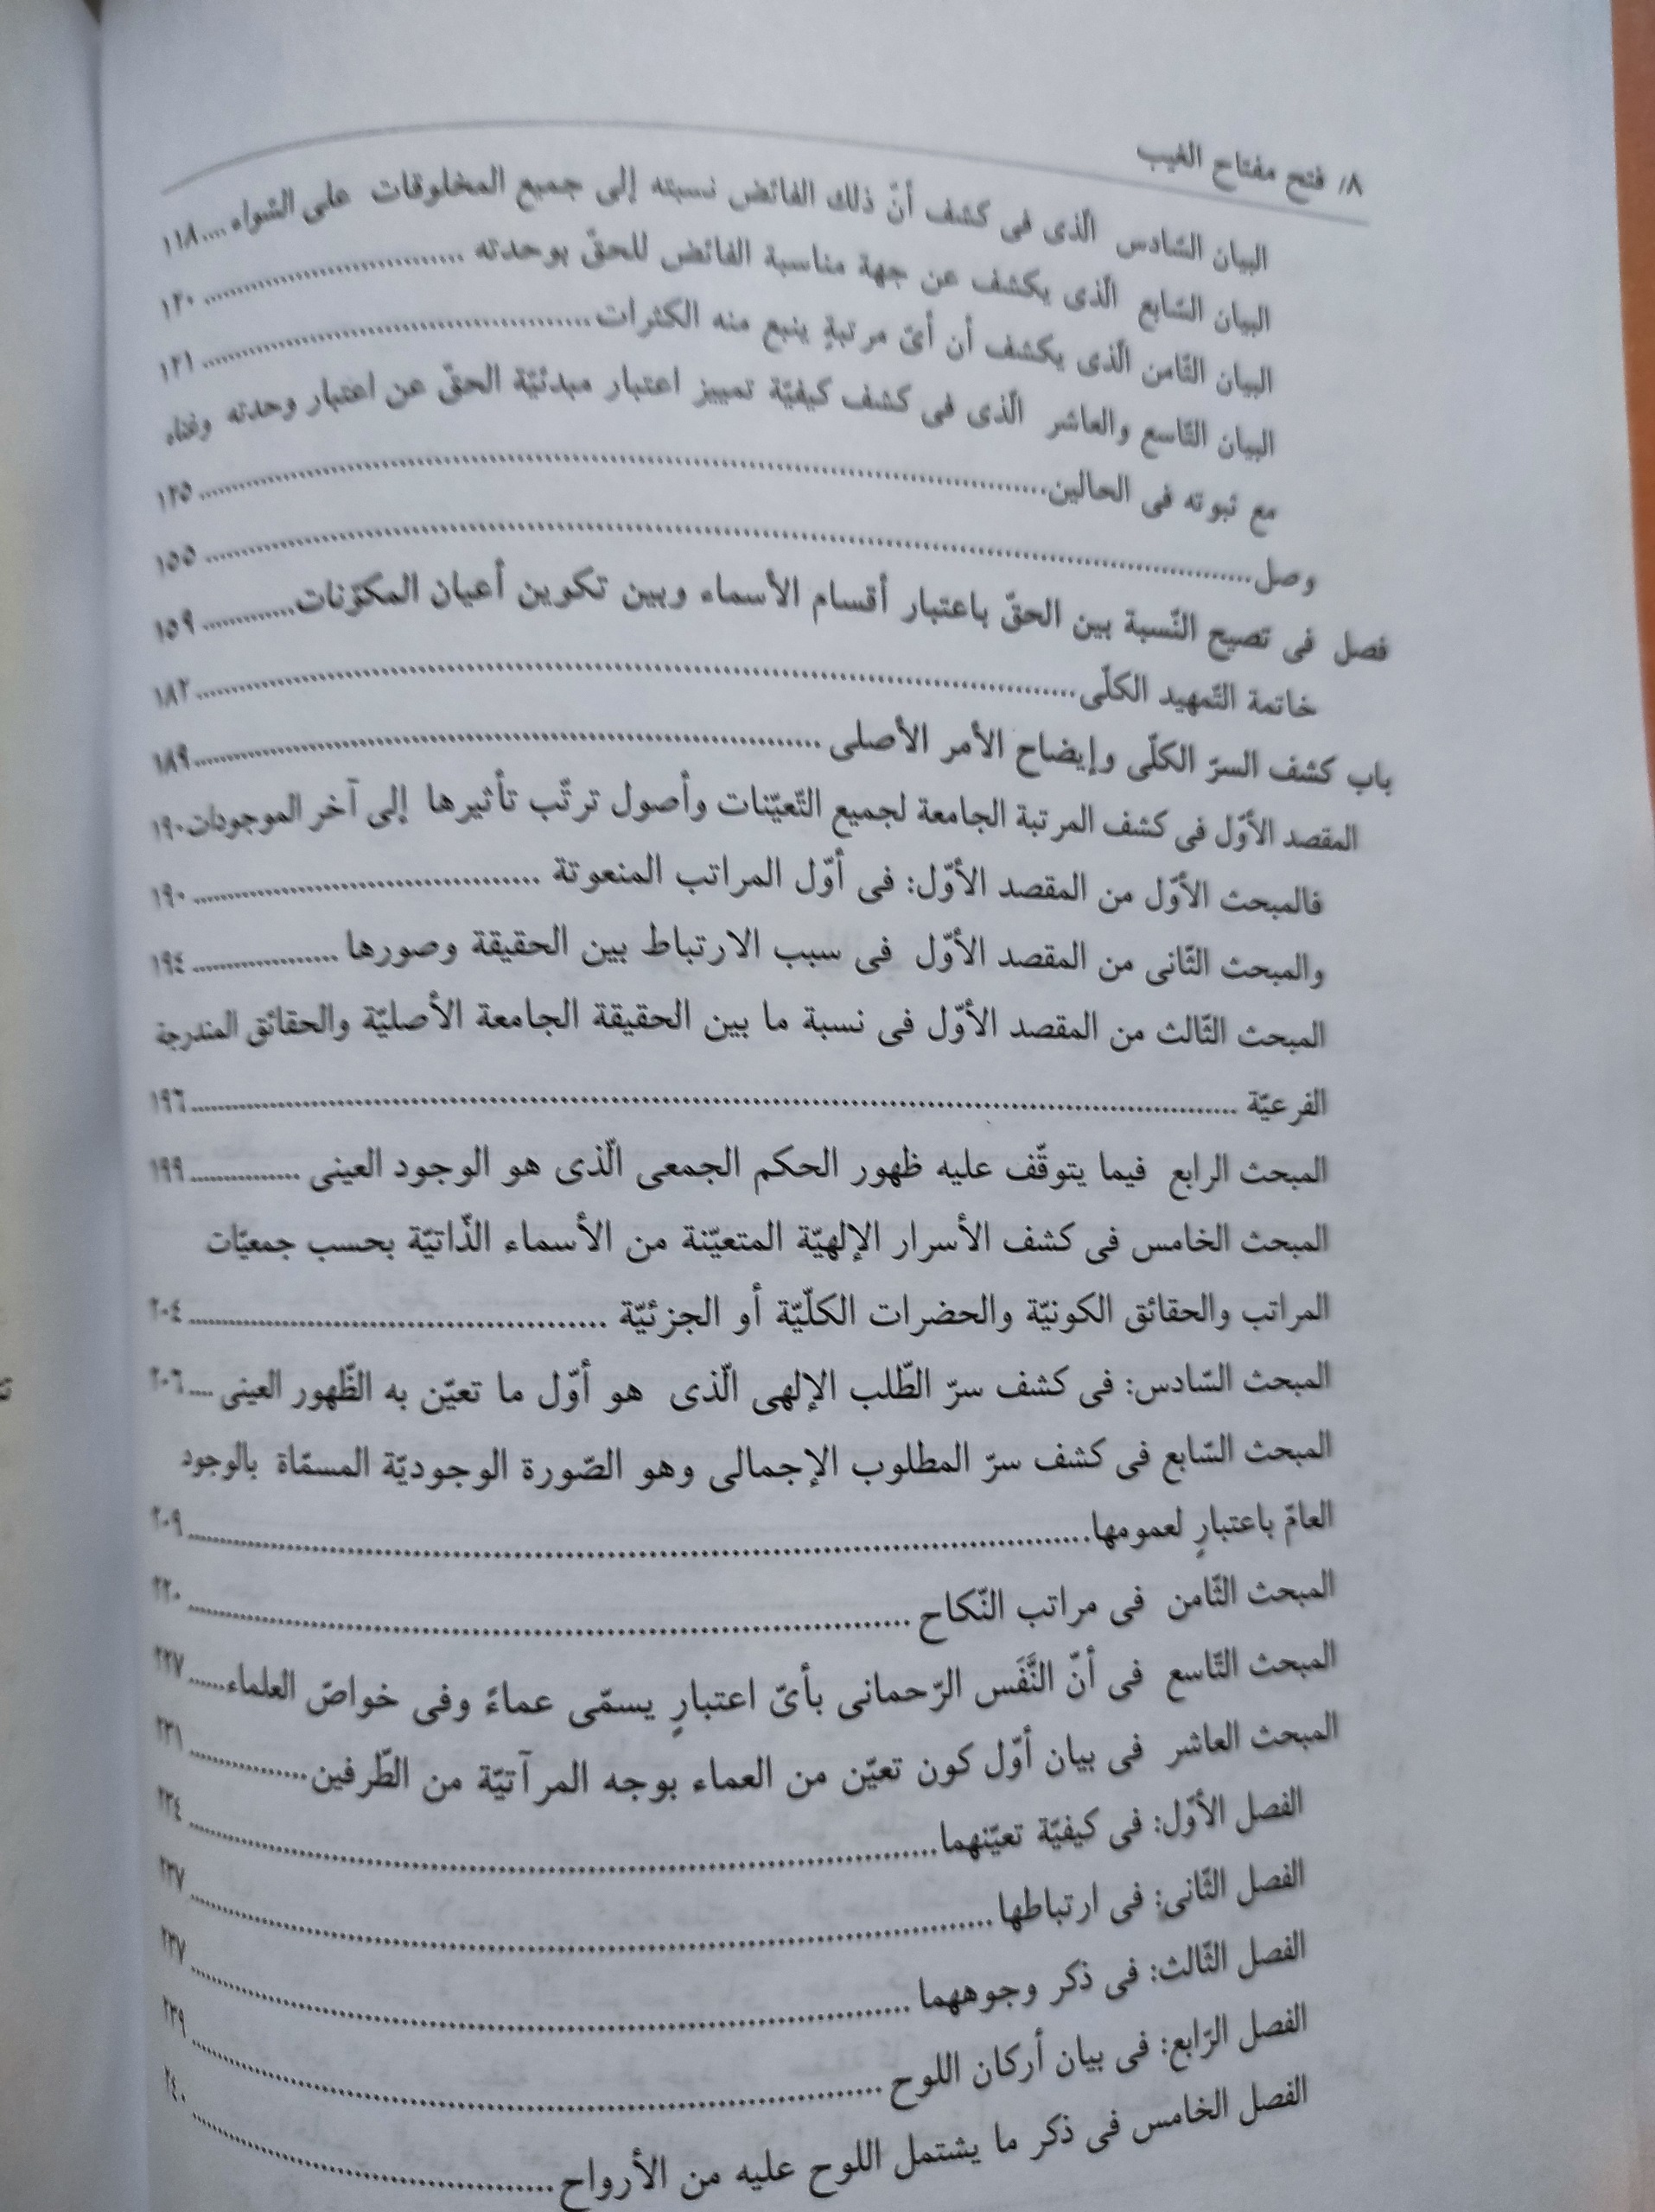 ٨/ فتح مفتاح الغيب
البيان السّادس الّذى فى كشف أنّ ذلك الفائض نسبته إلى جميع المخلوقات على السّواء .... ١١٨
البيان السّابع الّذى يكشف عن جهة مناسبة الفائض للحقّ بوحدته .... ١٢٠
البيان الثّامن الّذى يكشف أن أىّ مرتبةٍ ينبع منه الكثرات .... ١٢١
البيان التّاسع والعاشر الّذى فى كشف كيفيّة تمييز اعتبار مبدئيّة الحقّ عن اعتبار وحدته وغناه
مع ثبوته فى الحالين .... ١٢٥
وصل .... ١٥٥
فصل فى تصيح النّسبة بين الحقّ باعتبار أقسام الأسماء وبين تكوين أعيان المكوّنات .... ١٥٩
خاتمة التّمهيد الكلّى .... ١٨٢
باب كشف السرّ الكلّى وإيضاح الأمر الأصلى .... ١٨٩
المقصد الأوّل فى كشف المرتبة الجامعة لجميع التّعيّنات وأصول ترتّب تأثيرها إلى آخر الموجودات ١٩٠
فالمبحث الأوّل من المقصد الأوّل: فى أوّل المراتب المنعوتة .... ١٩٠
والمبحث الثّانى من المقصد الأوّل فى سبب الارتباط بين الحقيقة وصورها .... ١٩٤
المبحث الثّالث من المقصد الأوّل فى نسبة ما بين الحقيقة الجامعة الأصليّة والحقائق المندرجة
الفرعيّة .... ١٩٦
المبحث الرابع فيما يتوقّف عليه ظهور الحكم الجمعى الّذى هو الوجود العينى .... ١٩٩
المبحث الخامس فى كشف الأسرار الإلهيّة المتعيّنة من الأسماء الذّاتيّة بحسب جمعيّات
المراتب والحقائق الكونيّة والحضرات الكلّيّة أو الجزئيّة .... ٢٠٤
المبحث السّادس: فى كشف سرّ الطّلب الإلهى الّذى هو أوّل ما تعيّن به الظّهور العينى .... ٢٠٦
المبحث السّابع فى كشف سرّ المطلوب الإجمالى وهو الصّورة الوجوديّة المسمّاة بالوجود
العامّ باعتبارٍ لعمومها .... ٢٠٩
المبحث الثّامن فى مراتب النّكاح .... ٢٢٠
المبحث التّاسع فى أنّ النَّفَس الرّحمانى بأىّ اعتبارٍ يسمّى عماءً وفى خواصّ العلماء .... ٢٢٧
المبحث العاشر فى بيان أوّل كون تعيّن من العماء بوجه المرآتيّة من الطّرفين .... ٢٣١
الفصل الأوّل: فى كيفيّة تعيّنهما .... ٢٣٤
الفصل الثّانى: فى ارتباطها .... ٢٣٧
الفصل الثّالث: فى ذكر وجوههما .... ٢٣٧
الفصل الرّابع: فى بيان أركان اللوح .... ٢٣٩
الفصل الخامس فى ذكر ما يشتمل اللوح عليه من الأرواح .... ٢٤٠